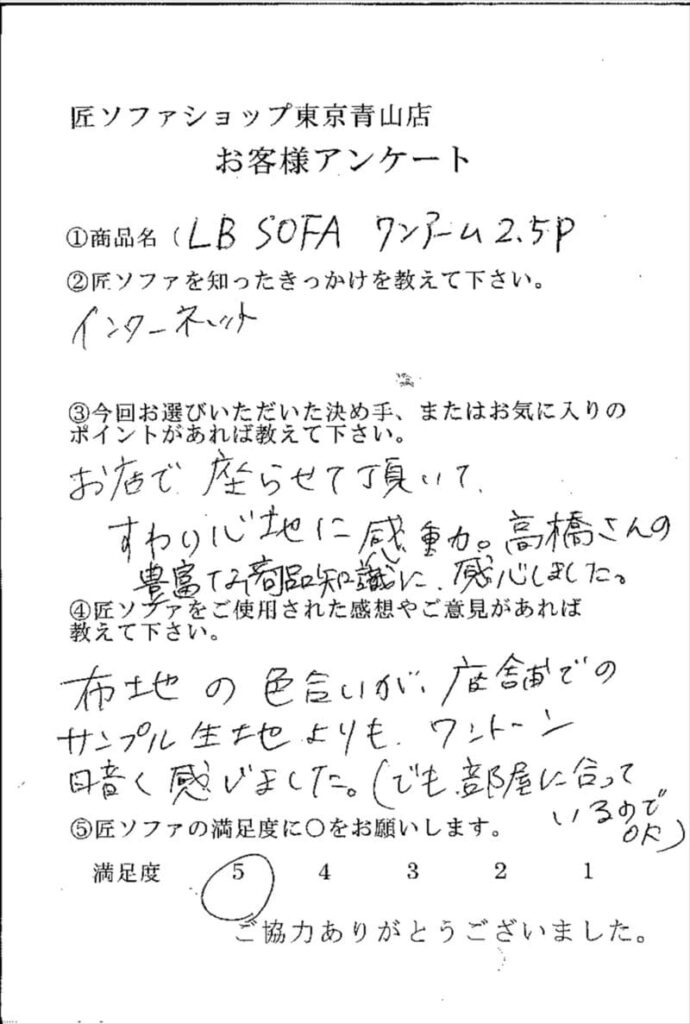 匠ソファショップ東京青山店
お客様アンケート
①商品名（LB SOFA ワンアーム2.5P
②匠ソファを知ったきっかけを教えて下さい。
インターネット
③今回お選びいただいた決め手、またはお気に入りの
ポイントがあれば教えて下さい。
お店で座らせて頂いて、
すわり心地に感動。高橋さんの
豊富な商品知識に、感心しました。
④匠ソファをご使用された感想やご意見があれば
教えて下さい。
布地の色合いが、店舗での
サンプル生地よりも、ワントーン
暗く感じました。（でも部屋に合って
いるので
OK）
⑤匠ソファの満足度に○をお願いします。
満足度 5 4 3 2 1
ご協力ありがとうございました。